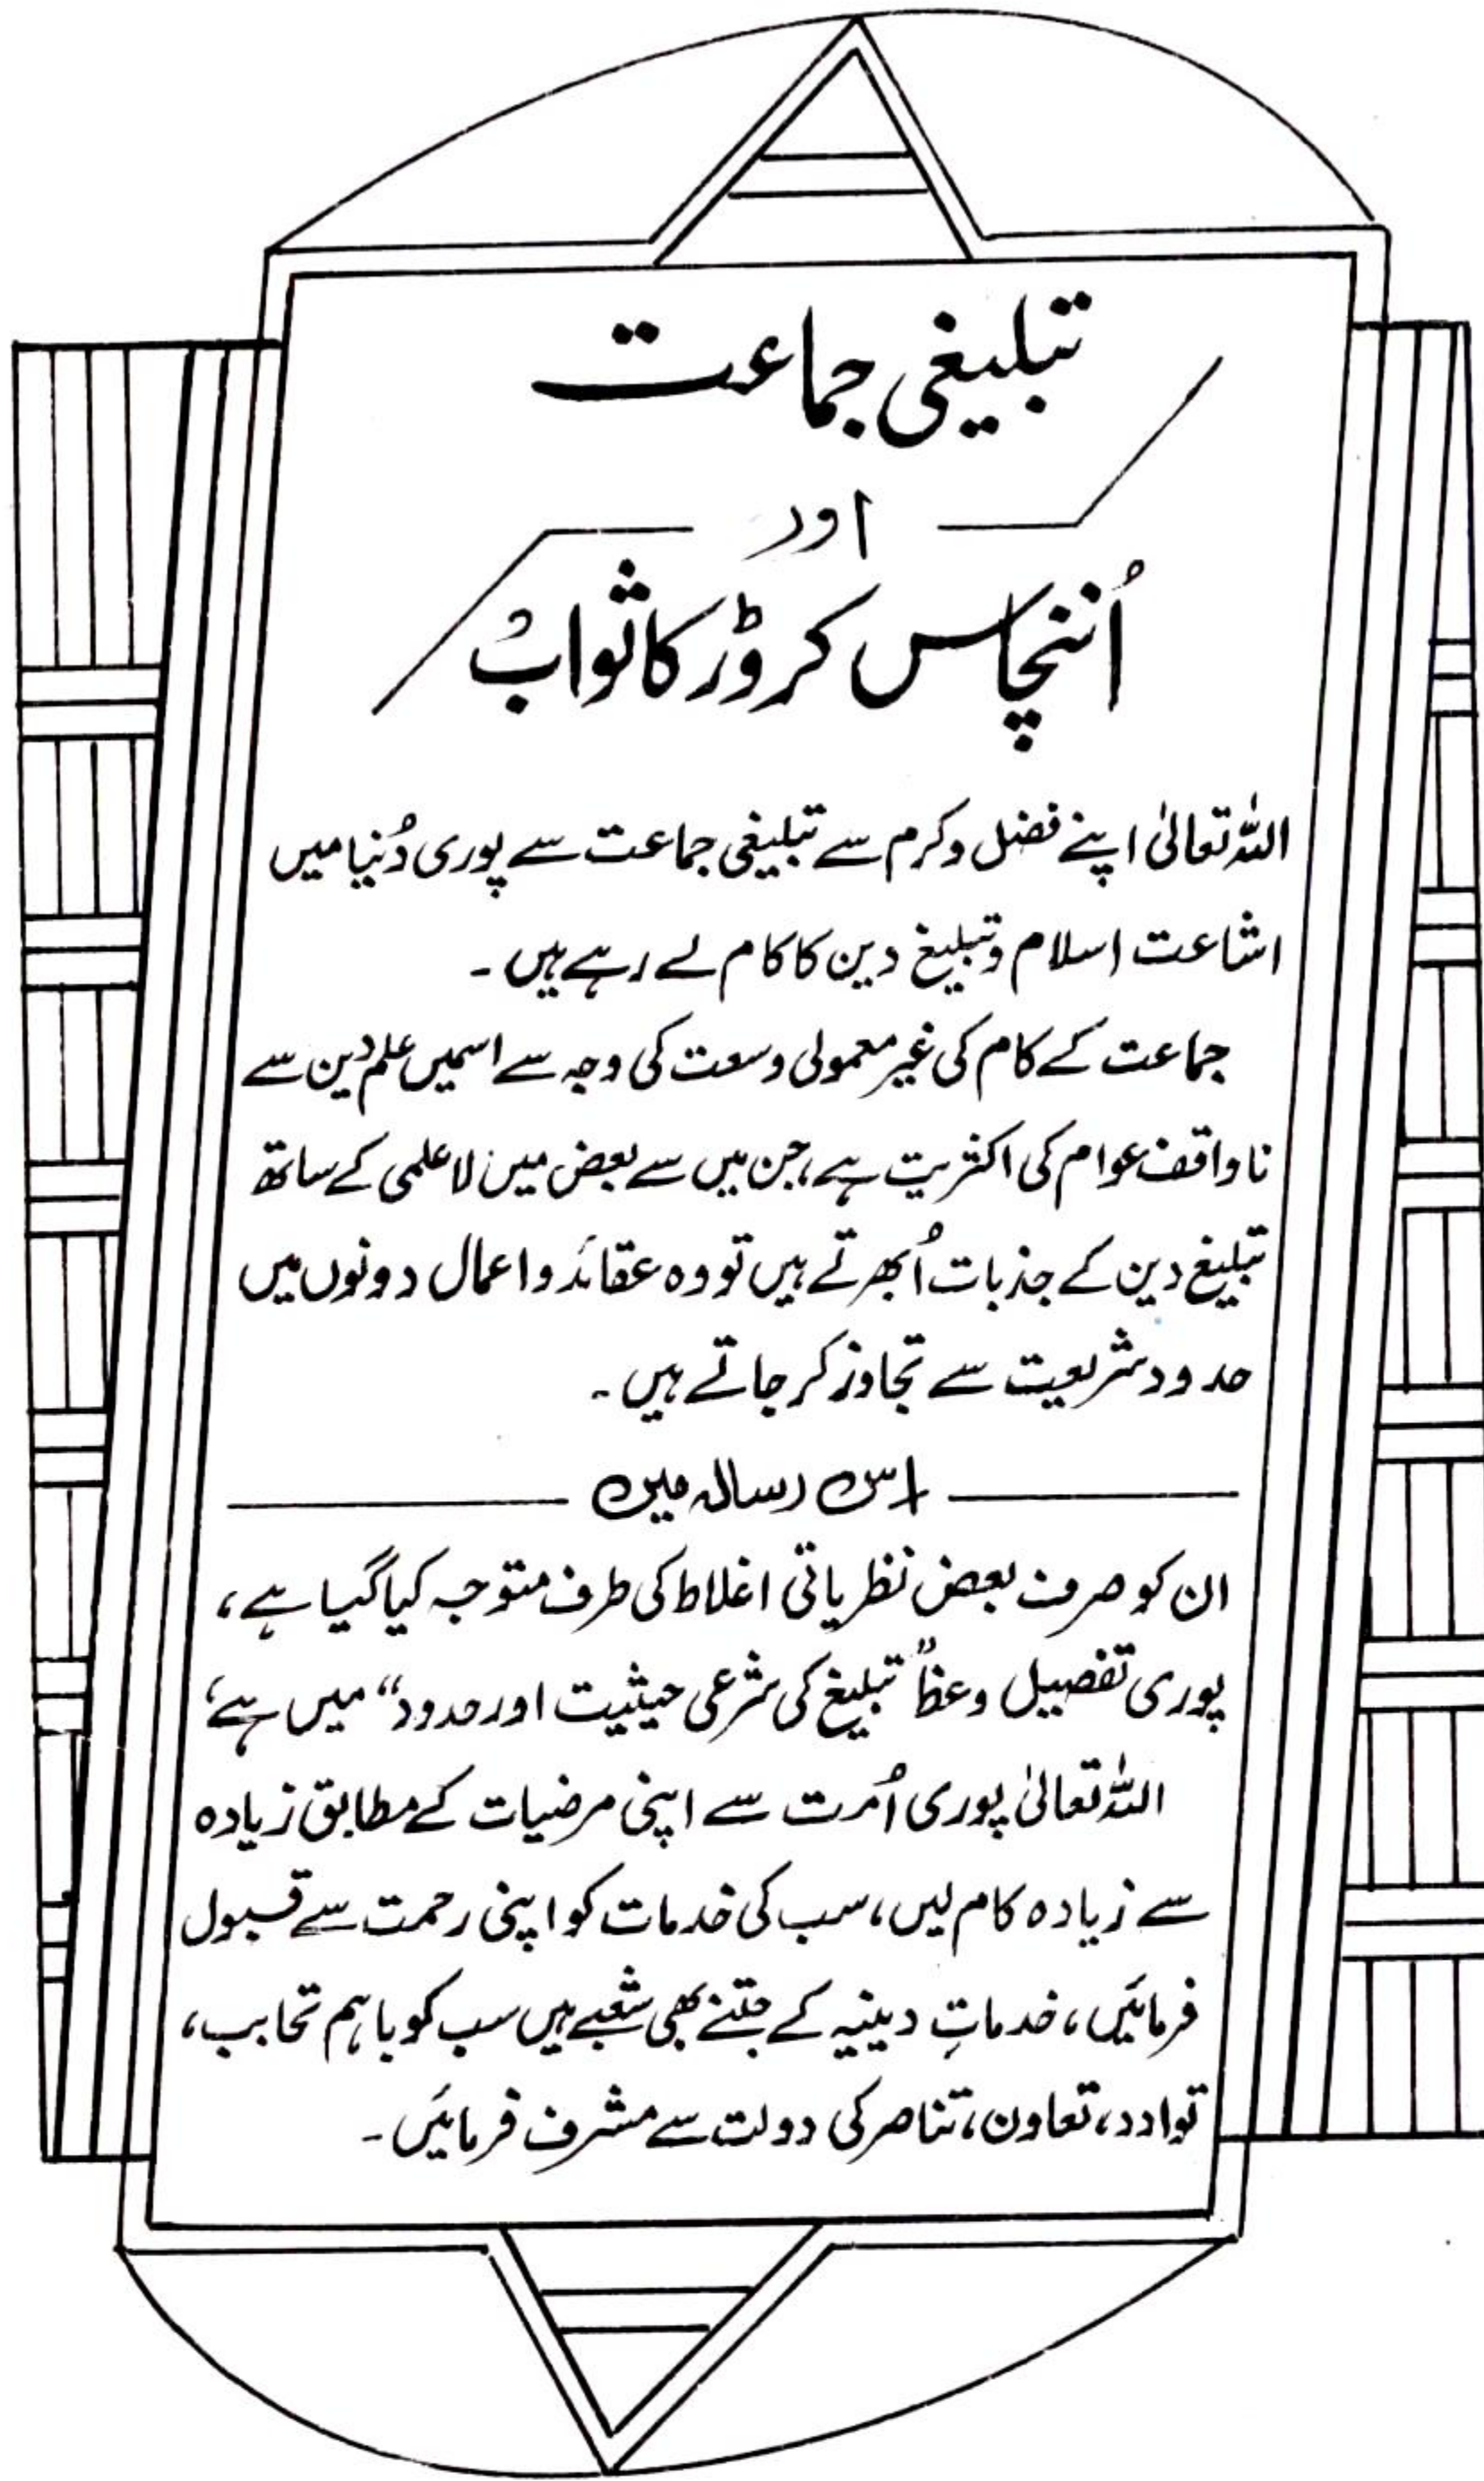 تبلیغی جماعت
اور
اُننچاس کروڑ کا ثواب
اللہ تعالیٰ اپنے فضل وکرم سے تبلیغی جماعت سے پوری دُنیا میں
اشاعت اسلام وتبلیغ دین کا کام لے رہے ہیں ۔
جماعت کے کام کی غیر معمولی وسعت کی وجہ سے اسمیں علم دین سے
ناواقف عوام کی اکثریت ہے، جن میں سے بعض میں لاعلمی کے ساتھ
تبلیغ دین کے جذبات اُبھرتے ہیں تو وہ عقائد واعمال دونوں میں
حدود شریعت سے تجاوز کر جاتے ہیں ۔
اس رسالہ میں
ان کو صرف بعض نظریاتی اغلاط کی طرف متوجہ کیا گیا ہے،
پوری تفصیل وعظ "تبلیغ کی شرعی حیثیت اور حدود" میں ہے،
اللہ تعالیٰ پوری اُمت سے اپنی مرضیات کے مطابق زیادہ
سے زیادہ کام لیں، سب کی خدمات کو اپنی رحمت سے قبول
فرمائیں، خدماتِ دینیہ کے جتنے بھی شعبے ہیں سب کو باہم تحابب،
توادد، تعاون، تناصر کی دولت سے مشرف فرمائیں ۔